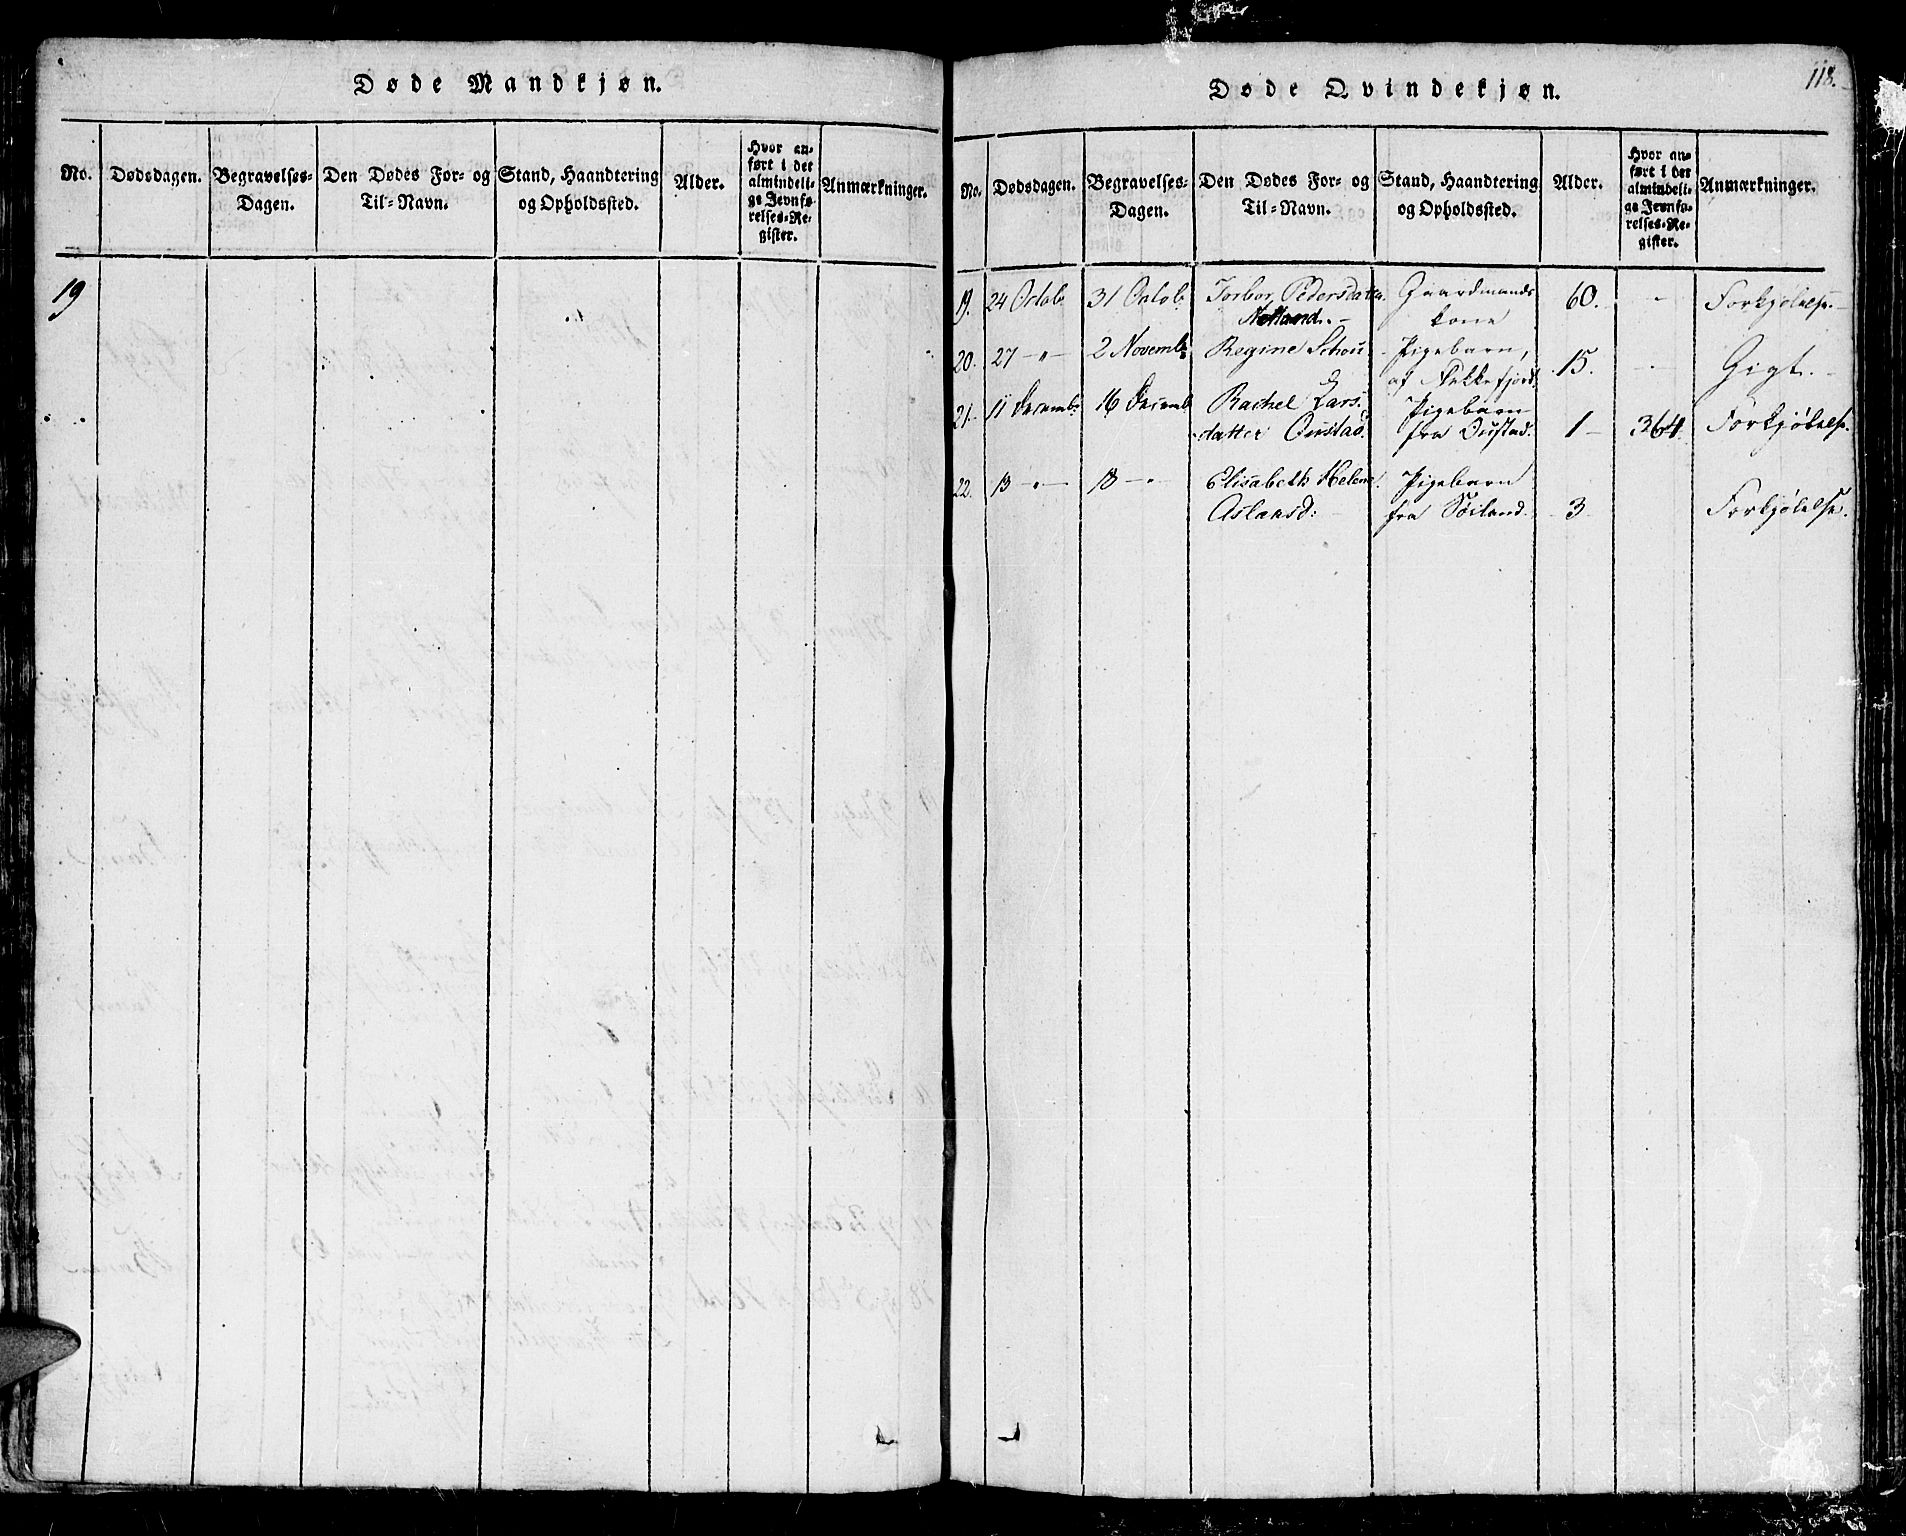 Døde Mandkjøn.
No. Dødsdagen. Begravelses-Dagen. Den Dødes For- og Til-Navn. Stand, Haandtering og Opholdssted. Alder. Hvor anført i det almindelige Jevnførelses-Register. Anmærkninger.
19
118.
Døde Qvindekjøn.
No. Dødsdagen. Begravelses-Dagen. Den Dødes For- og Til-Navn. Stand, Haandtering og Opholdssted. Alder. Hvor anført i det almindelige Jevnførelses-Register. Anmærkninger.
19. 24 Octob. 31 Octob. Torbor Pedersdatter Gaardmands 60. - Forkjølelse.
Netland. kone
20. 27 -"- 2 Novemb. Regine Schou Pigebarn, 15. - Gigt.
af Rekkefjord.
21. 11 Decemb. 16 Decemb. Rachel Lars- Pigebarn 1 364. Forkjølelse.
datter Oustad. fra Oustad.
22. 13 -"- 18 -"- Elisabeth Helene Pigebarn
Aslaksd: fra Søiland. 3 Forkjølelse.